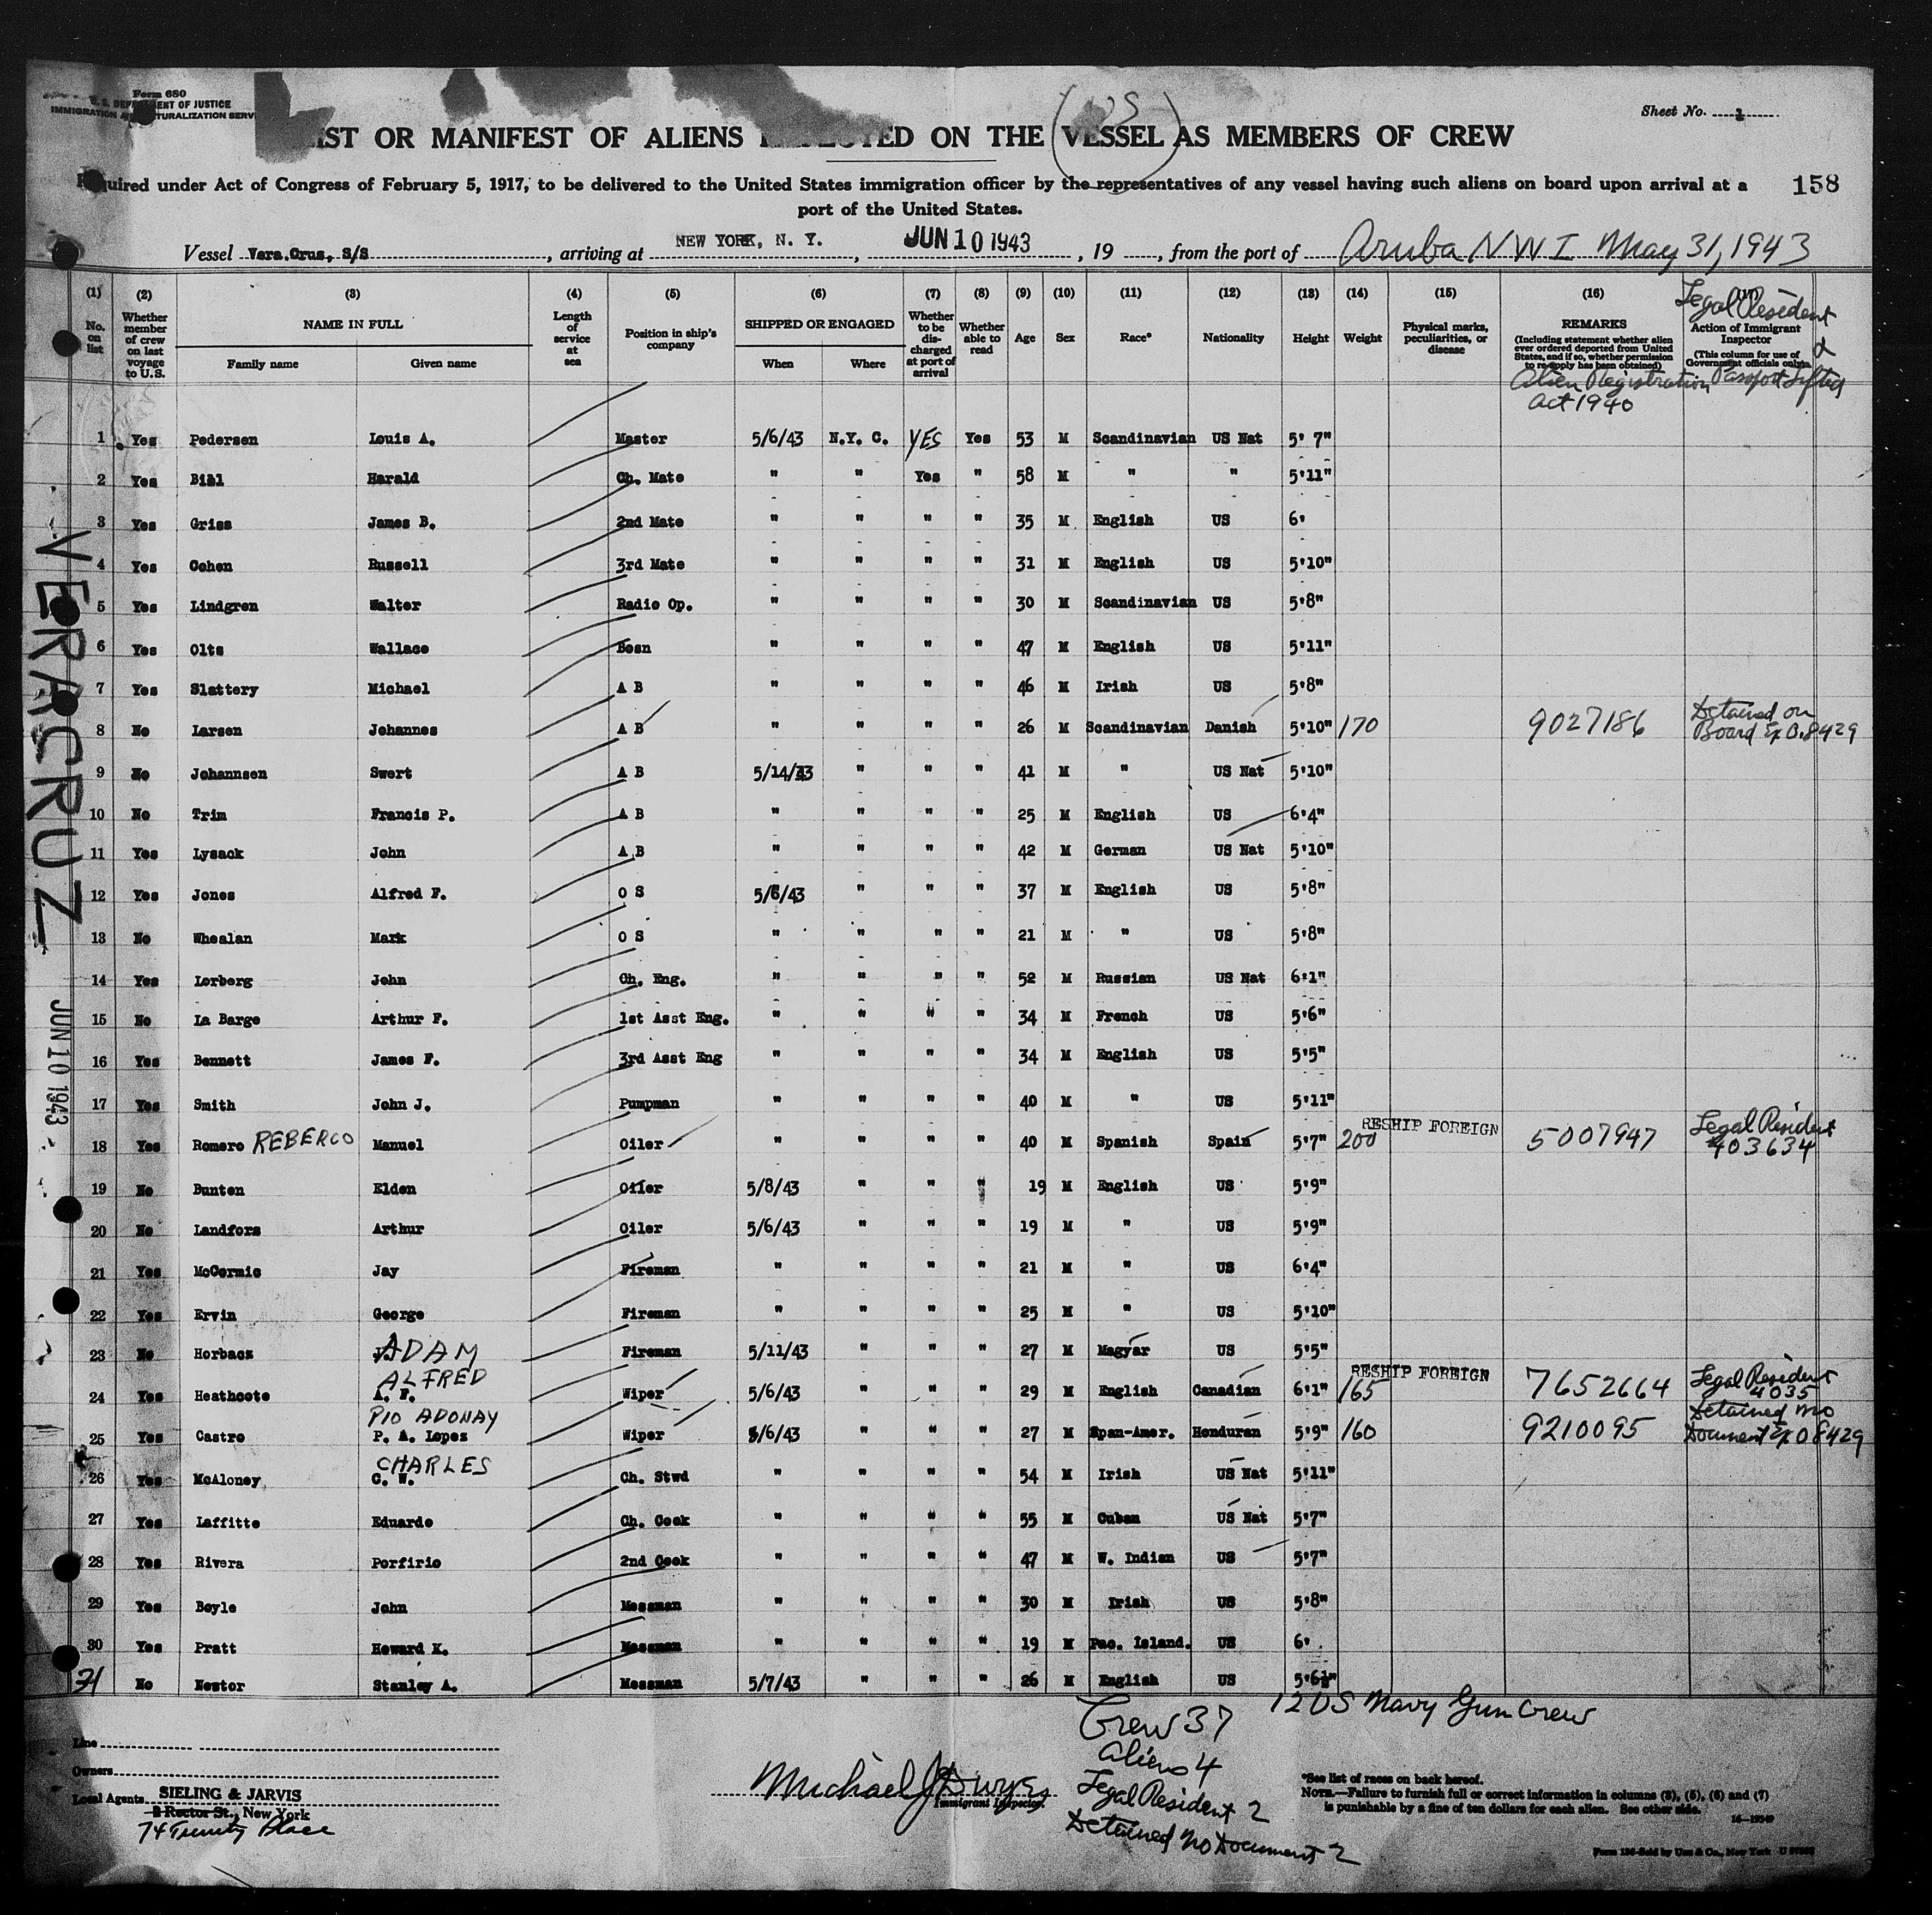 Form 680
U. S. DEPARTMENT OF JUSTICE
IMMIGRATION NATURALIZATION SERV
Sheet No. 1
US
IST OR MANIFEST OF ALIENS ED ON THE VESSEL AS MEMBERS OF CREW
Required under Act of Congress of February 5, 1917, to be delivered to the United States immigration officer by the representatives of any vessel having such aliens on board upon arrival at a
port of the United States.
158
Vessel Vera Crus, S/S, arriving at NEW YORK, N. Y., JUN 10 1943, 19, from the port of Aruba N W I May 31, 1943
(1) No. on list
(2) Whether member of crew on last voyage to U.S.
(3) NAME IN FULL Family name Given name
(4) Length of service at sea
(5) Position in ship's company
(6) SHIPPED OR ENGAGED When Where
(7) Whether to be discharged at port of arrival
(8) Whether able to read
(9) Age
(10) Sex
(11) Race*
(12) Nationality
(13) Height
(14) Weight
(15) Physical marks, peculiarities, or disease
(16) REMARKS (Including statement whether alien ever ordered deported from United States, and if so, whether permission to re-apply has been obtained)
Alien Registration Act 1940
(17) Action of Immigrant Inspector (This column for use of Government officials only)
Legal Resident & Passport Lifted
1 Yes Pedersen Louis A. Master 5/6/43 N.Y. C. YES Yes 53 M Scandinavian US Nat 5' 7"
2 Yes Bihl Harald Ch. Mate " " Yes " 58 M " " 5'11"
3 Yes Griss James B. 2nd Mate " " " " 35 M English US 6'
4 Yes Cohen Russell 3rd Mate " " " " 31 M English US 5'10"
5 Yes Lindgren Walter Radio Op. " " " " 30 M Scandinavian US 5'8"
6 Yes Olts Wallace Bosn " " " " 47 M English US 5'11"
7 Yes Slattery Michael A B " " " " 46 M Irish US 5'8"
8 No Larsen Johannes A B " " " " 26 M Scandinavian Danish 5'10" 170 9027186 Detained on Board Ex O. 8429
9 No Johannsen Swert A B 5/14/43 " " " 41 M " US Nat 5'10"
10 No Trim Francis P. A B " " " " 25 M English US 6'4"
11 Yes Lysack John A B " " " " 42 M German US Nat 5'10"
12 Yes Jones Alfred F. O S 5/6/43 " " " 37 M English US 5'8"
13 No Whealan Mark O S " " " " 21 M " US 5'8"
14 Yes Lorberg John Ch. Eng. " " " " 52 M Russian US Nat 6'1"
15 No La Barge Arthur F. 1st Asst Eng. " " " " 34 M French US 5'6"
16 Yes Bennett James F. 3rd Asst Eng " " " " 34 M English US 5'5"
17 Yes Smith John J. Pumpman " " " " 40 M " US 5'11"
18 Yes Romero REBERCO Manuel Oiler " " " " 40 M Spanish Spain 5'7" 200 RESHIP FOREIGN 5007947 Legal Resident 403634
19 No Bunten Elden Oiler 5/8/43 " " " 19 M English US 5'9"
20 No Landfors Arthur Oiler 5/6/43 " " " 19 M " US 5'9"
21 Yes McCormic Jay Fireman " " " " 21 M " US 6'4"
22 Yes Ervin George Fireman " " " " 25 M " US 5'10"
23 No Horbacs ADAM Fireman 5/11/43 " " " 27 M Magyar US 5'5"
24 Yes Heathcote ALFRED A. F. Wiper 5/6/43 " " " 29 M English Canadian 6'1" 165 RESHIP FOREIGN 7652664 Legal Resident 4035
25 Yes Castro PIO ADONAY P. A. Lopez Wiper 5/6/43 " " " 27 M Span-Amer. Honduran 5'9" 160 9210095 Detained no Document Ex O 8429
26 Yes McAloney CHARLES C. W. Ch. Stwd " " " " 54 M Irish US Nat 5'11"
27 Yes Laffitte Eduardo Ch. Cook " " " " 55 M Cuban US Nat 5'7"
28 Yes Rivera Porfirio 2nd Cook " " " " 47 M W. Indian US 5'7"
29 Yes Boyle John Messman " " " " 30 M Irish US 5'8"
30 Yes Pratt Howard K. Messman " " " " 19 M Pac. Island. US 6'
31 No Nestor Stanley A. Messman 5/7/43 " " " 26 M English US 5'6½"
VERACRUZ
JUN 10 1943
12 US Navy Gun Crew
Crew 37
Aliens 4
Legal Resident 2
Detained no Document 2
Line
Owners
Local Agents SIELING & JARVIS
2 Rector St., New York
74 Trinity Place
Michael J Dwyer
Immigrant Inspector.
*See list of races on back hereof.
NOTE.—Failure to furnish full or correct information in columns (3), (5), (6) and (7)
is punishable by a fine of ten dollars for each alien. See other side.
16—19349
Form 136—Sold by Unz & Co., New York